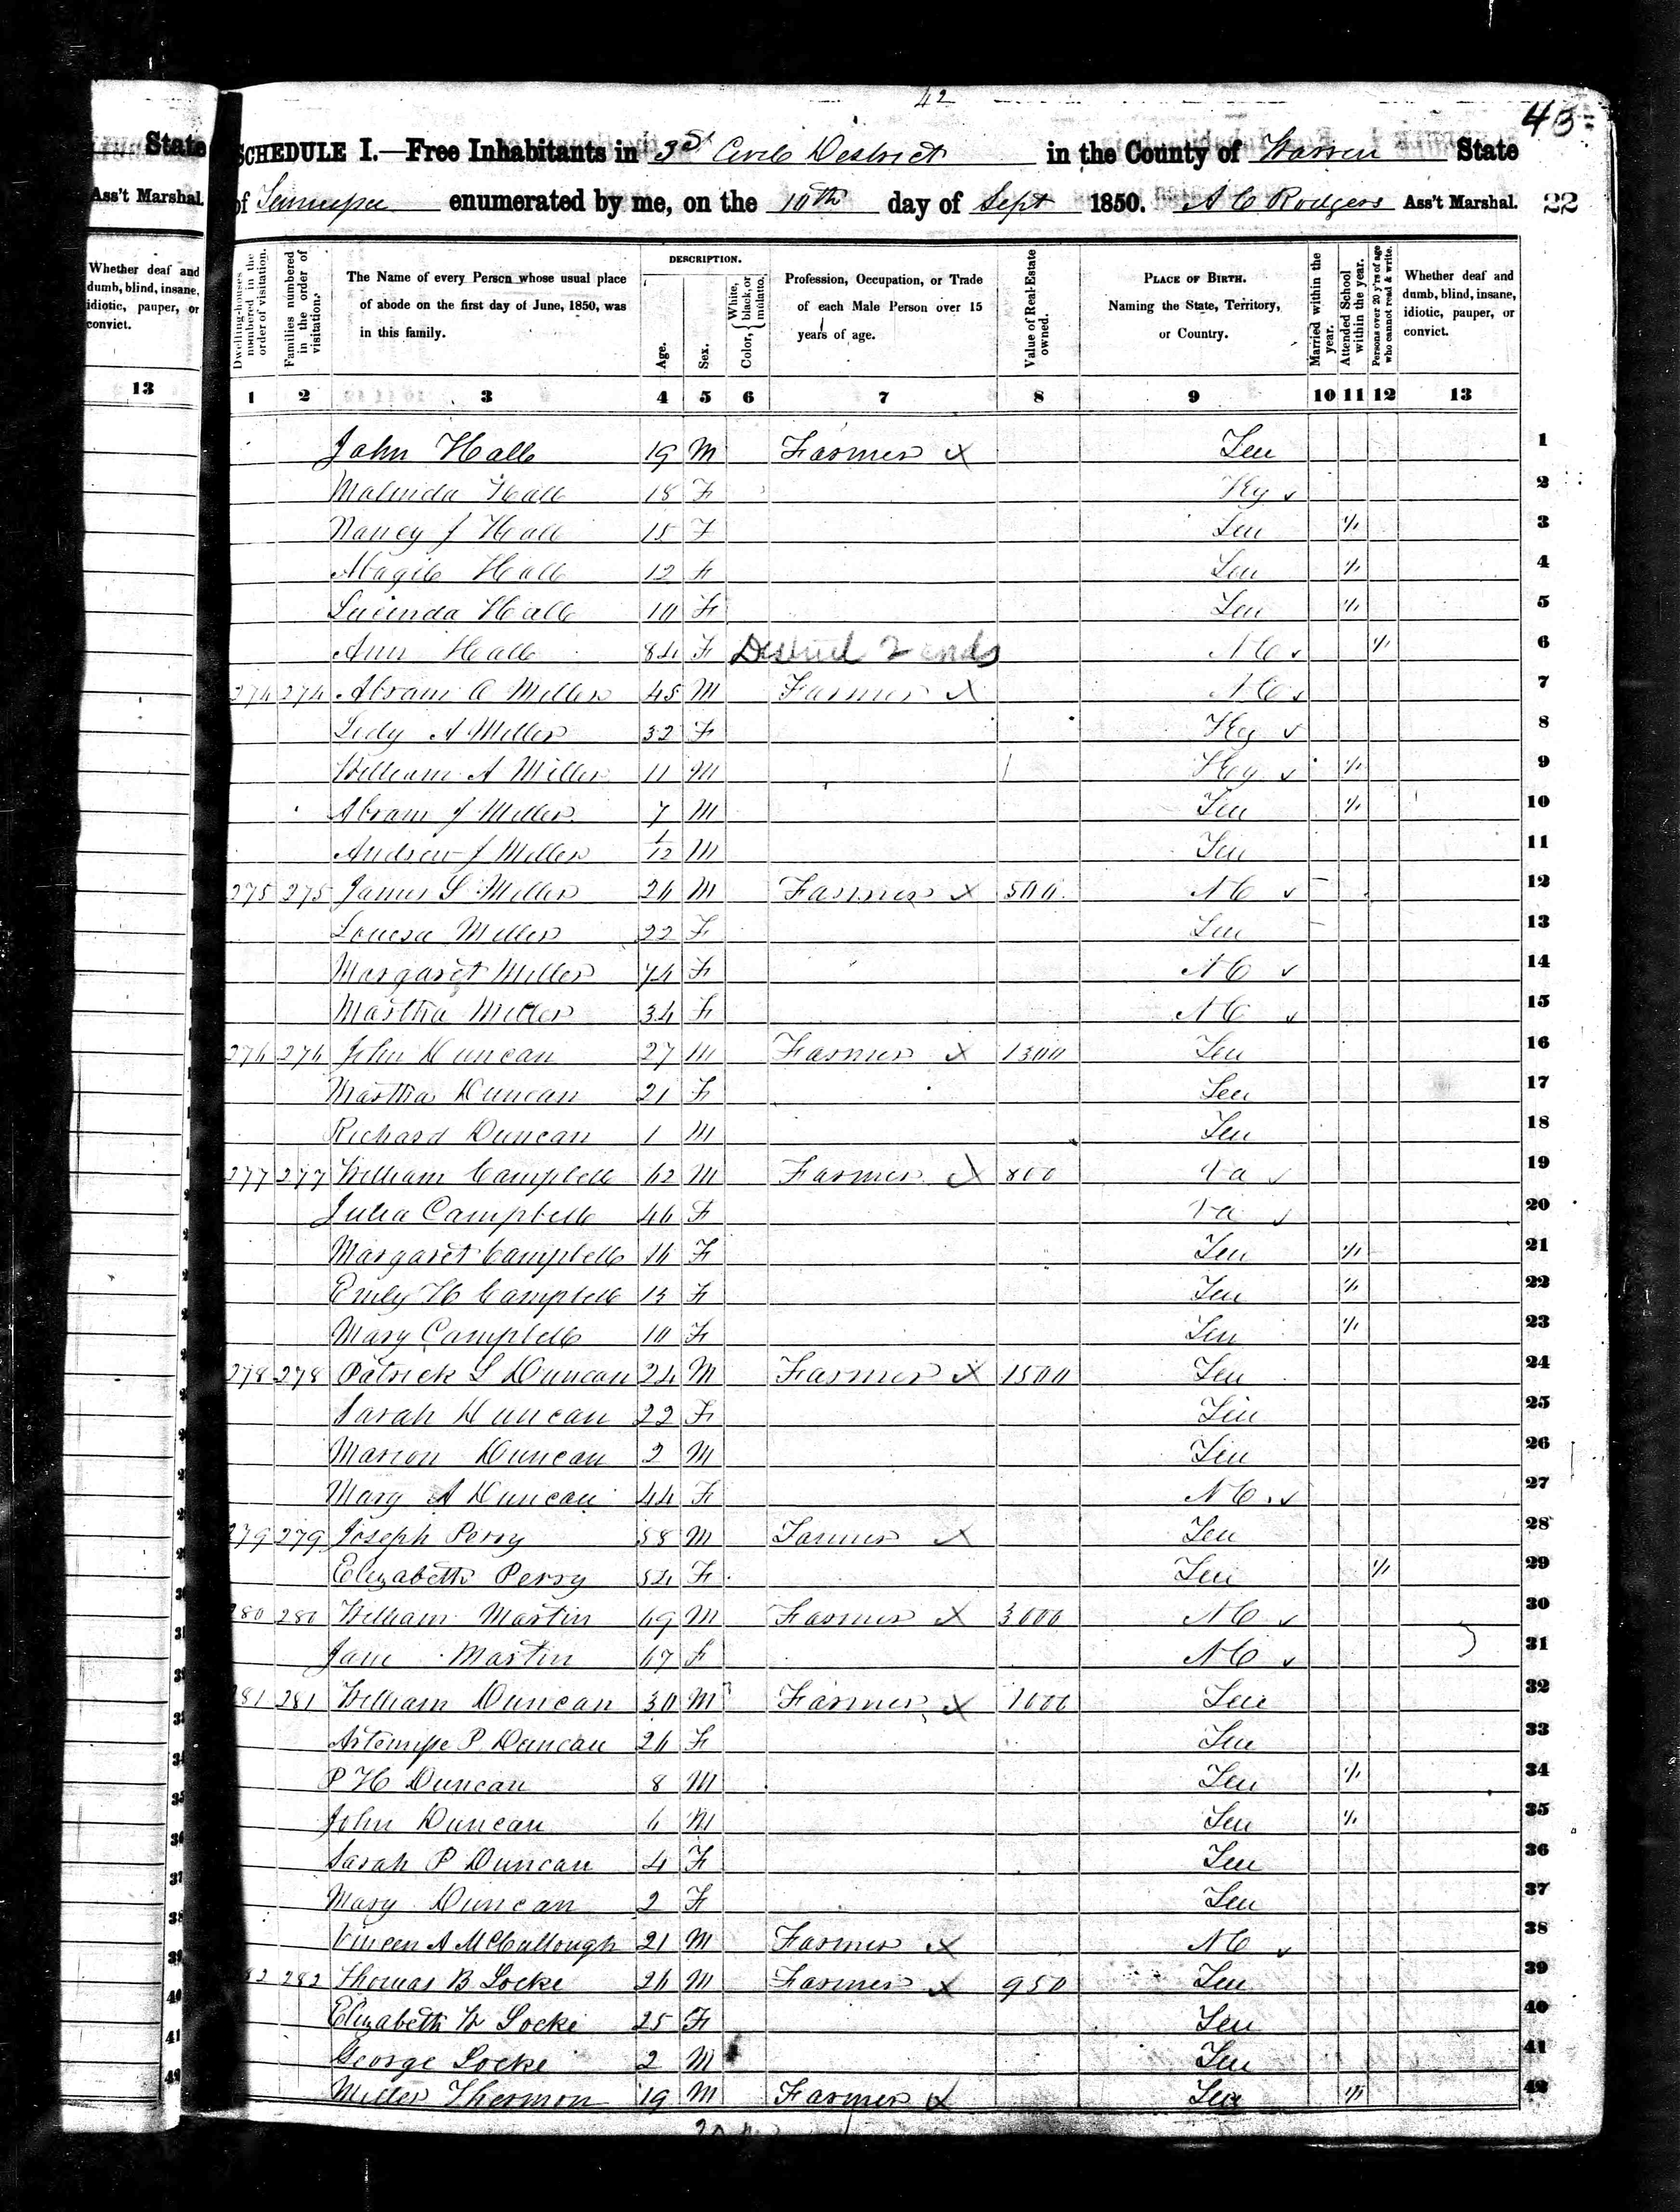 42
43
State
SCHEDULE I.—Free Inhabitants in 3rd Civil District in the County of Warren State
Ass't Marshal.
of Tennessee enumerated by me, on the 10th day of Sept 1850. A C Rodgers Ass't Marshal. 22
Whether deaf and dumb, blind, insane, idiotic, pauper, or convict.
Dwelling-houses numbered in the order of visitation.
Families numbered in the order of visitation.
The Name of every Person whose usual place of abode on the first day of June, 1850, was in this family.
DESCRIPTION.
Age.
Sex.
Color, { White, black, or mulatto.
Profession, Occupation, or Trade of each Male Person over 15 years of age.
Value of Real Estate owned.
PLACE OF BIRTH. Naming the State, Territory, or Country.
Married within the year.
Attended School within the year.
Persons over 20 y'rs of age who cannot read & write.
Whether deaf and dumb, blind, insane, idiotic, pauper, or convict.
13
1 2 3 4 5 6 7 8 9 10 11 12 13
John Hall 19 M Farmer X Ten 1
Malinda Hall 18 F Ky ✓ 2
Nancy J Hall 15 F Ten 1/1 3
Hall 12 F Ten 1/1 4
Lucinda Hall 10 F Ten 1/1 5
Ann Hall 84 F NC ✓ 1/1 6
274 274 Abram C Miller 45 M Farmer X NC ✓ 7
Ledy A Miller 32 F Ky ✓ 8
William A Miller 11 M Ky ✓ 1/1 9
Abram J Miller 7 M Ten 1/1 10
Andrew J Miller 1/12 M Ten 11
275 275 James S Miller 26 M Farmer X 500 NC ✓ 12
Louesa Miller 22 F Ten 13
Margaret Miller 74 F NC ✓ 14
Martha Miller 34 F NC ✓ 15
276 276 John Duncan 27 M Farmer X 1300 Ten 16
Martha Duncan 21 F Ten 17
Richard Duncan 1 M Ten 18
277 277 William Campbell 62 M Farmer X 800 Va ✓ 19
Julia Campbell 46 F Va ✓ 20
Margaret Campbell 16 F Ten 1/1 21
Emily H Campbell 13 F Ten 1/1 22
Mary Campbell 10 F Ten 1/1 23
278 278 Patrick L Duncan 24 M Farmer X 1500 Ten 24
Sarah Duncan 22 F Ten 25
Marion Duncan 2 M Ten 26
Mary A Duncan 44 F NC ✓ 27
279 279 Joseph Perry 58 M Farmer X Ten 28
Elizabeth Perry 54 F Ten 1/1 29
280 280 William Martin 69 M Farmer X 3000 NC ✓ 30
Jane Martin 67 F NC ✓ 31
281 281 William Duncan 30 M Farmer X 1000 Ten 32
Artemise P Duncan 26 F Ten 33
P H Duncan 8 M Ten 1/1 34
John Duncan 6 M Ten 1/1 35
Sarah P Duncan 4 F Ten 36
Mary Duncan 2 F Ten 37
Vincen A McCullough 21 M Farmer X NC ✓ 38
282 282 Thomas B Locke 26 M Farmer X 950 Ten 39
Elizabeth Locke 25 F Ten 40
George Locke 2 M Ten 41
Miller Thermon 19 M Farmer X Ten 1/1 42